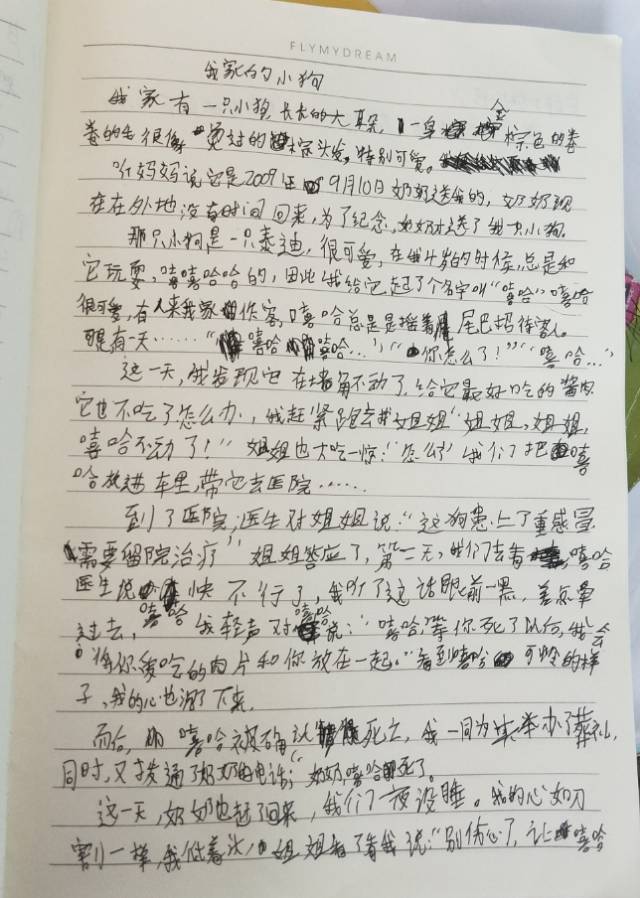 FLYMYDREAM
我家的小狗
我家有一只小狗,长长的大耳朵,一身金棕色的卷
卷的毛很像烫过的棕头发,特别可爱。
听妈妈说它是2009年9月10日奶奶送我的,奶奶现
在在外地没有时间回来,为了纪念,她就送了我一只小狗。
那只小狗是一只泰迪,很可爱,在我八岁的时候,总是和
它玩耍,嘻嘻哈哈的,因此我给它起了个名字叫“嘻哈”嘻哈
很可爱,有人来我家作客,嘻哈总是是摇着尾巴招待客人。
可是有一天……“嘻哈嘻哈…”,“你怎么了!”“嘻哈…”
这一天,我发现它在墙角不动了,给它最好吃的酱肉
它也不吃了怎么办,我赶紧跑去找姐姐“姐姐,姐姐,
嘻哈不动了!”姐姐也大吃一惊:“怎么了”我们把嘻
哈放进车里,带它去医院……
到了医院,医生对姐姐说:“这狗患上了重感冒
需要留院治疗”姐姐答应了,第二天,我们去看嘻哈
医生说嘻哈快不行了,我听了这话眼前一黑,差点晕
过去,我轻声对嘻哈说:“嘻哈,等你死了以后,我会
将你爱吃的肉片和你放在一起。”看到嘻哈可怜的样
子,我的心也沉了下来。
而后,嘻哈被确认死亡,我一同为它举办了葬礼,
同时,又拨通了奶奶的电话;“奶奶,嘻哈死了。
这一天,奶奶也赶了回来,我们一夜没睡。我的心如刀
割一样,我低着头,姐姐看了看我说:“别伤心了,让嘻哈